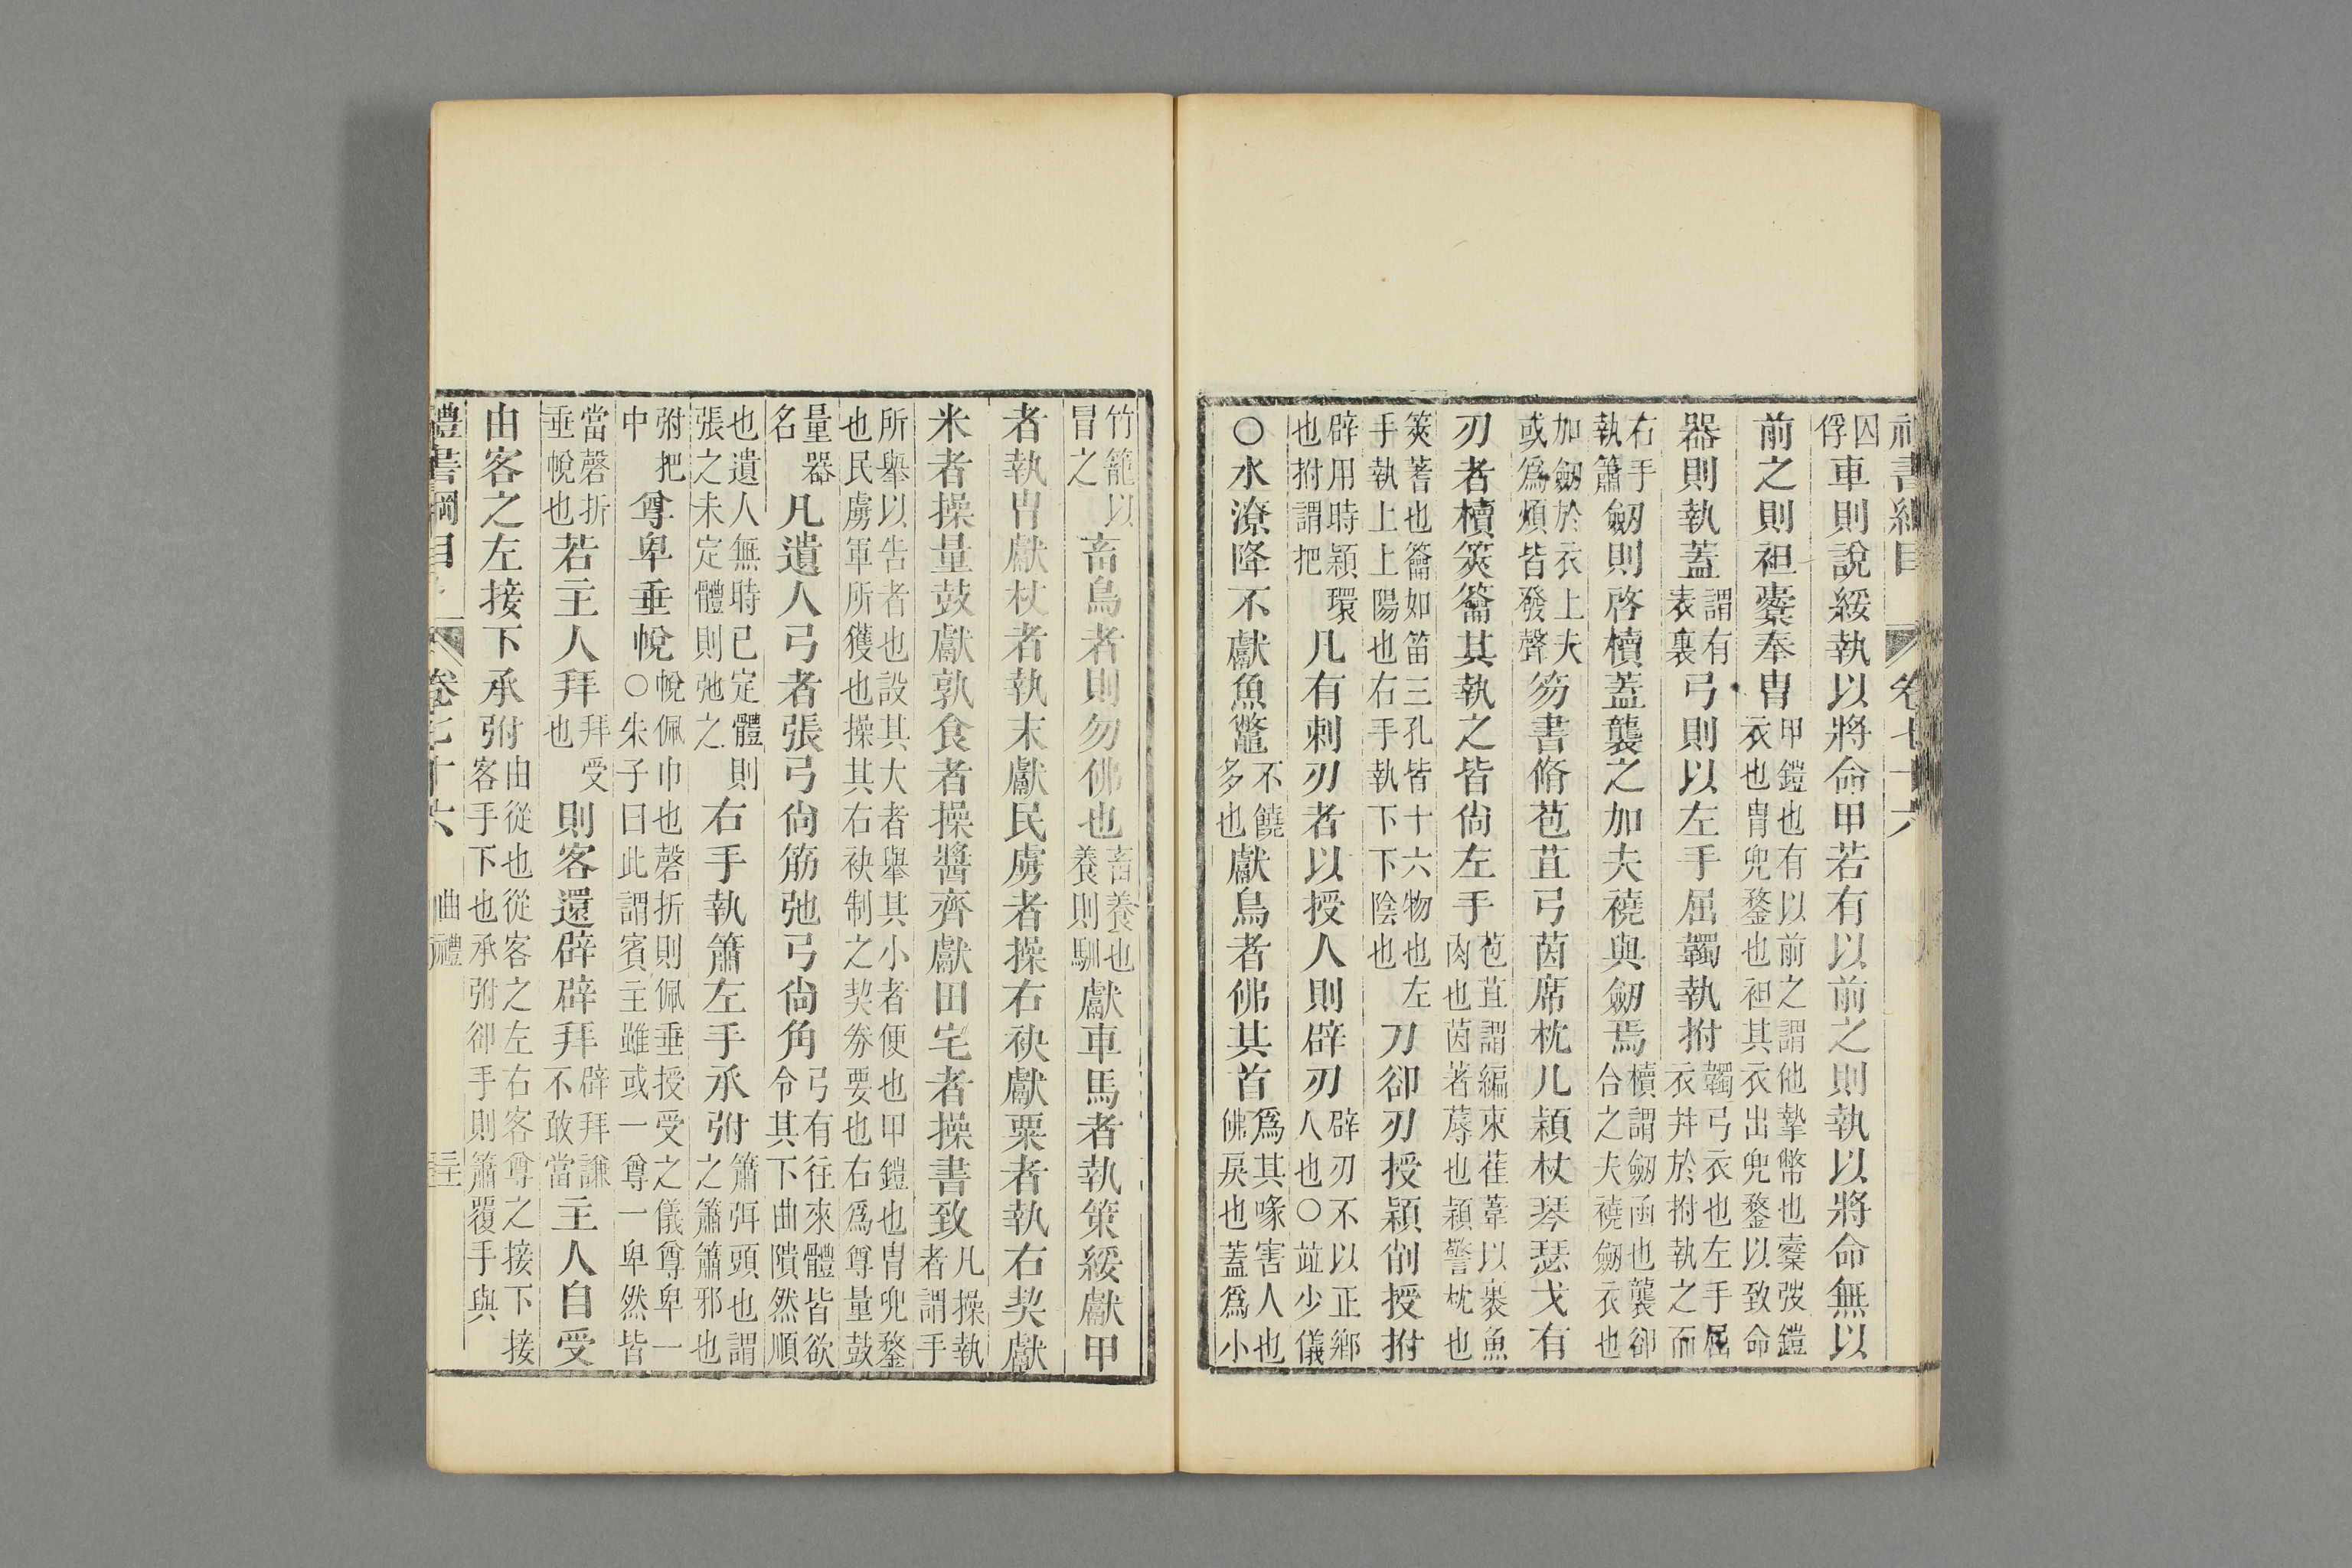 禮書綱目 卷七十六
囚俘車則說綏執以將命甲若有以前之則執以將命無以
前之則袒櫜奉冑甲鎧也有以前之謂他摯幣也櫜弢鎧衣也冑兜鍪也袒其衣出兜鍪以致命
器則執蓋謂有表裏弓則以左手屈韣執拊韣弓衣也左手屈衣并於拊執之而
右手執簫劒則啓櫝蓋襲之加夫襓與劒焉櫝謂劒函也襲卻合之夫襓劒衣也
加劒於衣上夫或爲煩皆發聲笏書脩苞苴弓茵席枕几穎杖琴瑟戈有
刃者櫝筴籥其執之皆尙左手苞苴謂編束萑葦以裹魚肉也茵著蓐也穎警枕也
筴蓍也籥如笛三孔皆十六物也左手執上上陽也右手執下下陰也刀卻刃授穎削授拊
辟用時穎環也拊謂把凡有刺刃者以授人則辟刃辟刃不以正鄉人也○竝少儀
○水潦降不獻魚鼈不饒多也獻鳥者佛其首爲其喙害人也佛戾也蓋爲小
竹籠以冒之畜鳥者則勿佛也畜養也養則馴獻車馬者執策綏獻甲
者執冑獻杖者執末獻民虜者操右袂獻粟者執右契獻
米者操量鼓獻孰食者操醬齊獻田宅者操書致凡操執者謂手
所舉以告者也設其大者舉其小者便也甲鎧也冑兜鍪也民虜軍所獲也操其右袂制之契券要也右爲尊量鼓
量器名凡遺人弓者張弓尙筋弛弓尙角弓有往來體皆欲令其下曲隤然順
也遺人無時已定體則張之未定體則弛之右手執簫左手承弣簫弭頭也謂之簫簫邪也
弣把中尊卑垂帨帨佩巾也磬折則佩垂授受之儀尊卑一○朱子曰此謂賓主雖或一尊一卑然皆
當磬折垂帨也若主人拜拜受也則客還辟辟拜辟拜謙不敢當主人自受
由客之左接下承弣由從也從客之左右客尊之接下接客手下也承弣卻手則簫覆手與
禮書綱目 卷七十六 曲禮